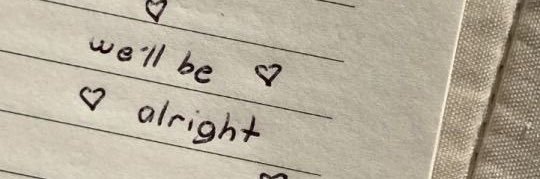 we'll be ♡
♡ alright